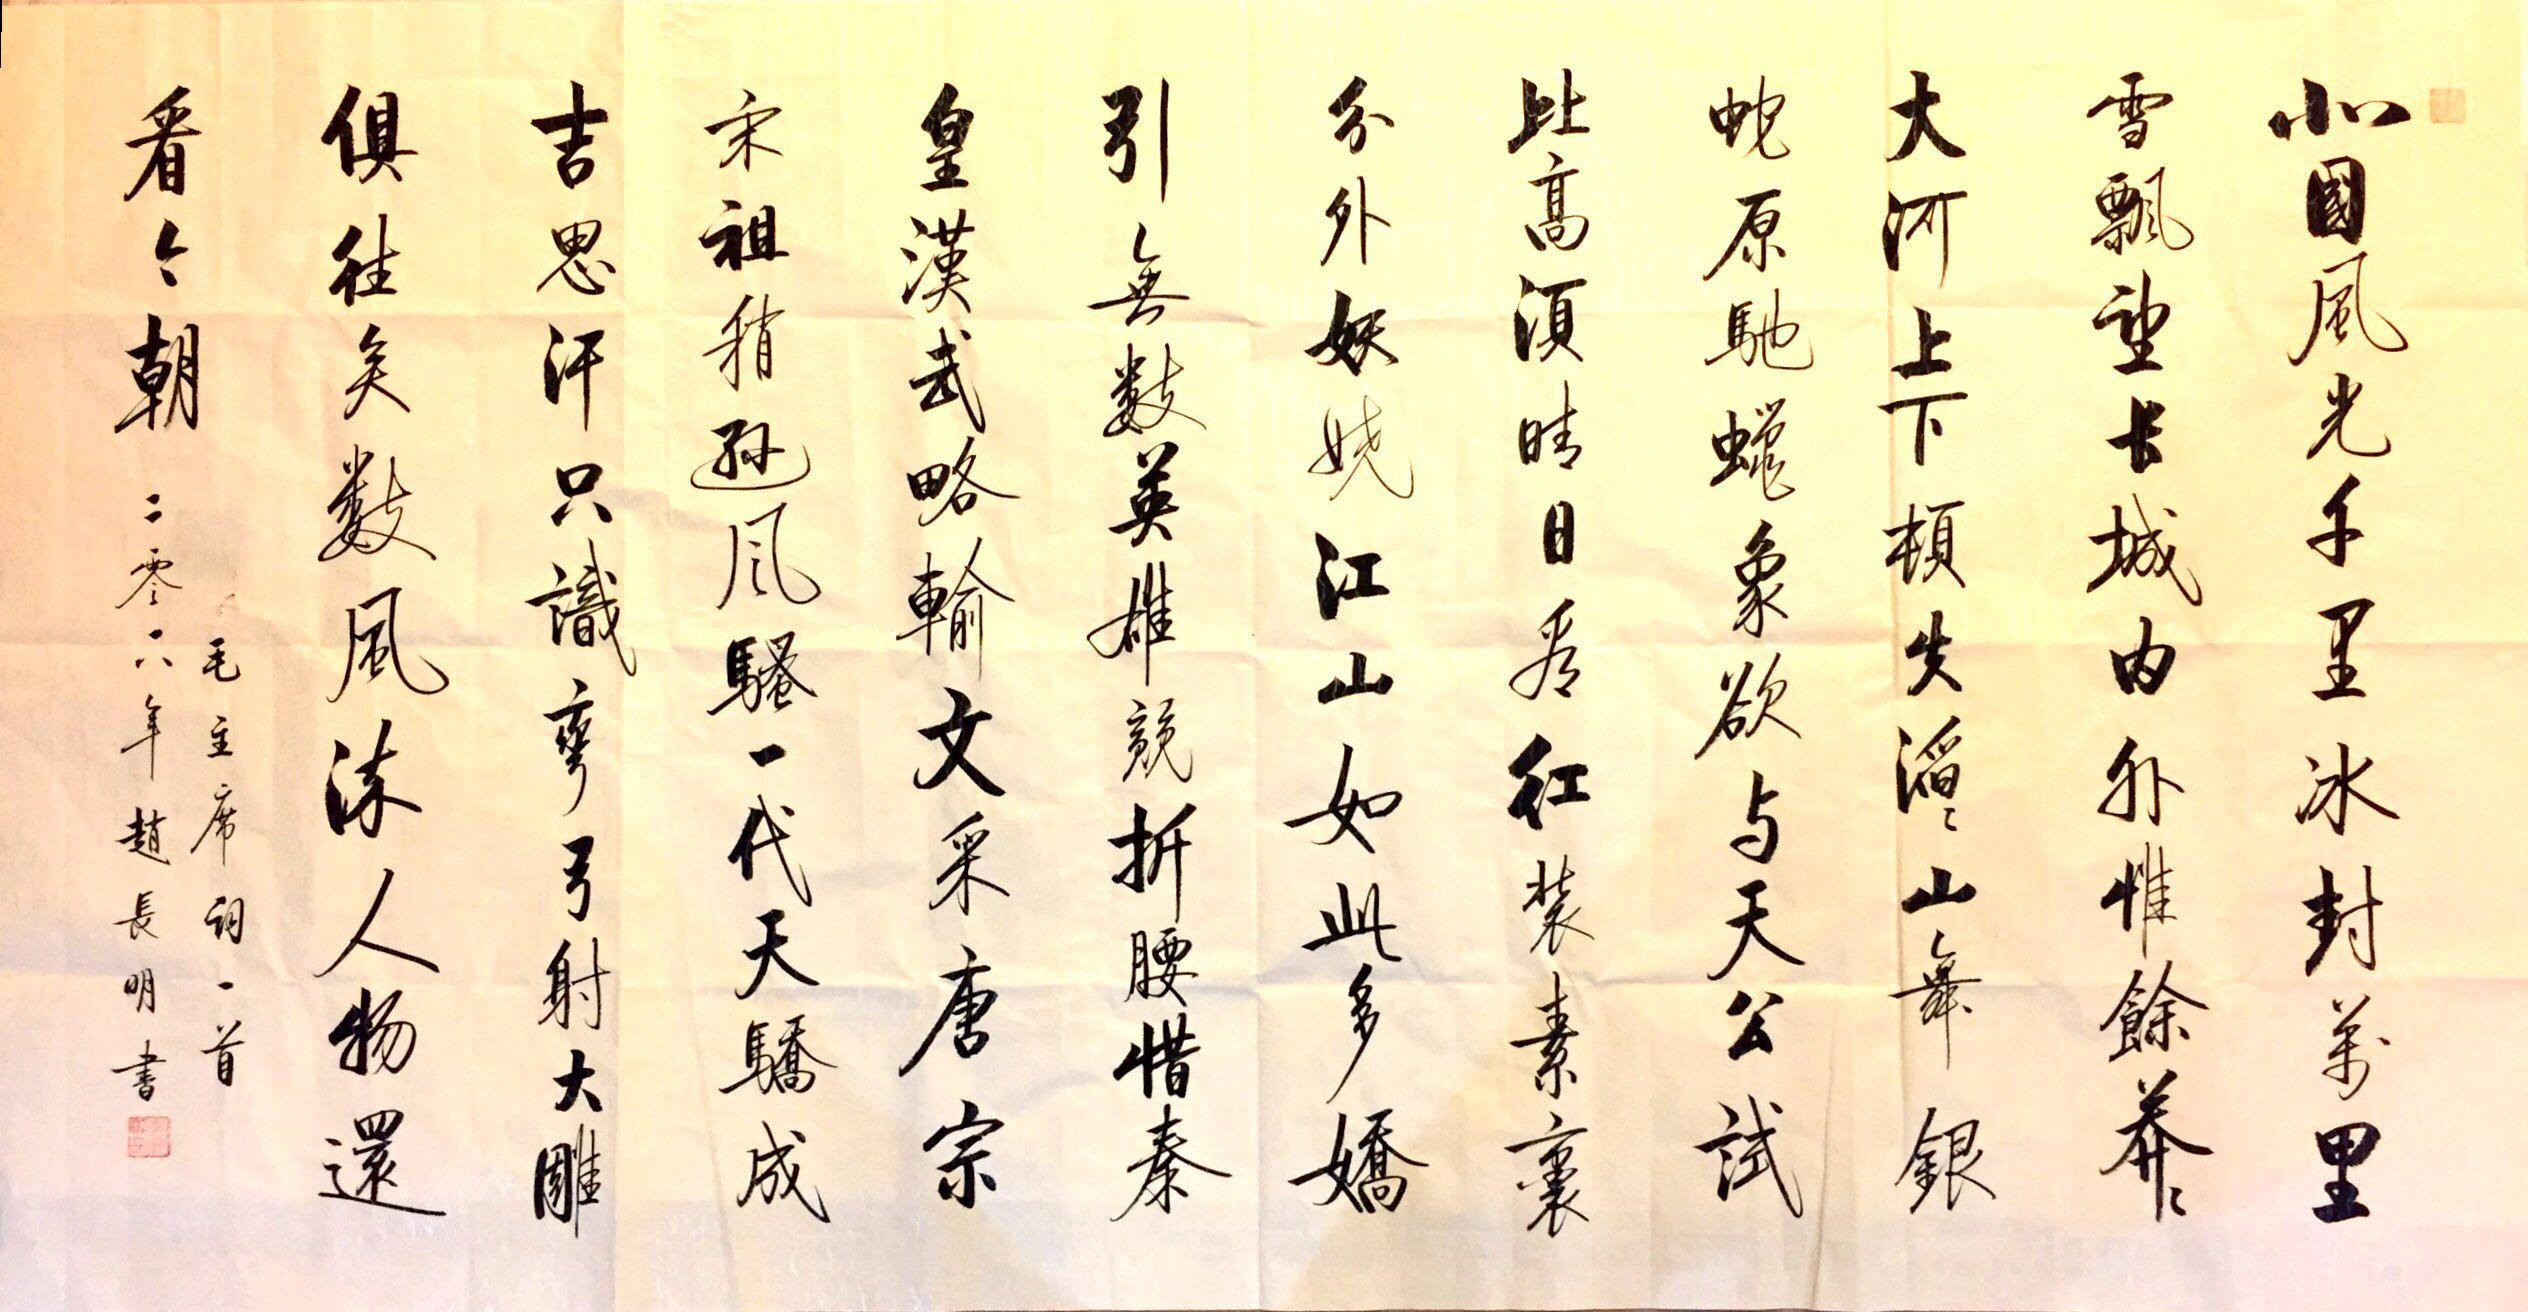 北國風光千里冰封萬里
雪飄望长城内外惟餘莽〻
大河上下頓失滔〻山舞銀
蛇原馳蠟象欲与天公試
比高須晴日看红装素裹
分外妖娆江山如此多嬌
引無数英雄競折腰惜秦
皇漢武略輸文采唐宗
宋祖稍逊風騷一代天驕成
吉思汗只識彎弓射大雕
俱往矣数風流人物還
看今朝
毛主席詞一首
二零一六年趙長明書